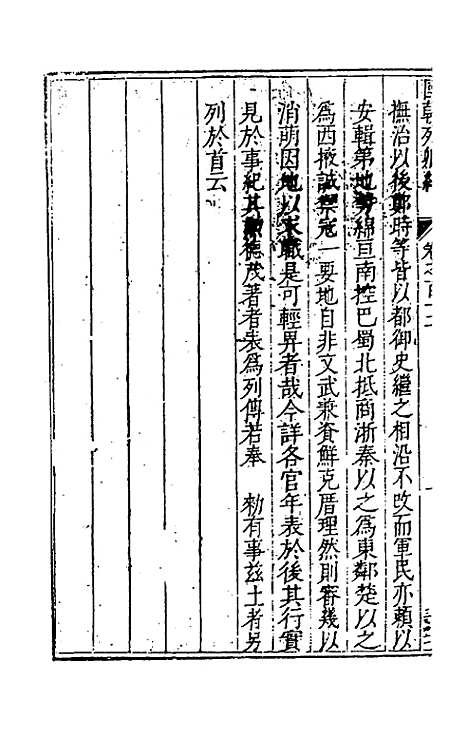 國朝列卿紀 卷之百十二
撫治以後鄭時等皆以都御史繼之相沿不改而軍民亦賴以
安輯第地勢綿亘南控巴蜀北抵商浙秦以之爲東鄰楚以之
爲西掖誠禦寇一要地自非文武兼資鮮克厝理然則審幾以
消萌因地以求職是可輕畀者哉今詳各官年表於後其行實
見於事紀其勲德茂著者表爲列傳若奉 勑有事茲土者另
列於首云